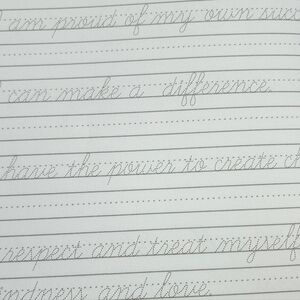 I am proud of my own succ
I can make a difference.
have the power to create ch
respect and treat myself
indness and love.